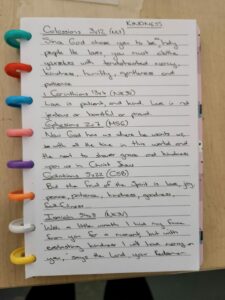 KINDNESS
Colossians 3v12 (NLT)
Since God chose you to be holy
people He loves, you must clothe
yourselves with tenderhearted mercy,
kindness, humility, gentleness and
patience
1 Corinthians 13v4
Love is patient, and kind. Love is not
jealous or boastful or proud.
Ephesians 2v7 (MSG)
Now God has us where he wants us,
with all the time in this world and
the next to shower grace and kindness
upon us in Christ Jesus
Galatians 5v22 (CSB)
But the fruit of the Spirit is love, joy,
peace, patience, kindness, goodness,
faithfulness.
Isaiah 54v8
With a little wrath I hid my face
from you for a moment, but with
everlasting kindness I will have mercy on
you, says the Lord, your Redeemer.